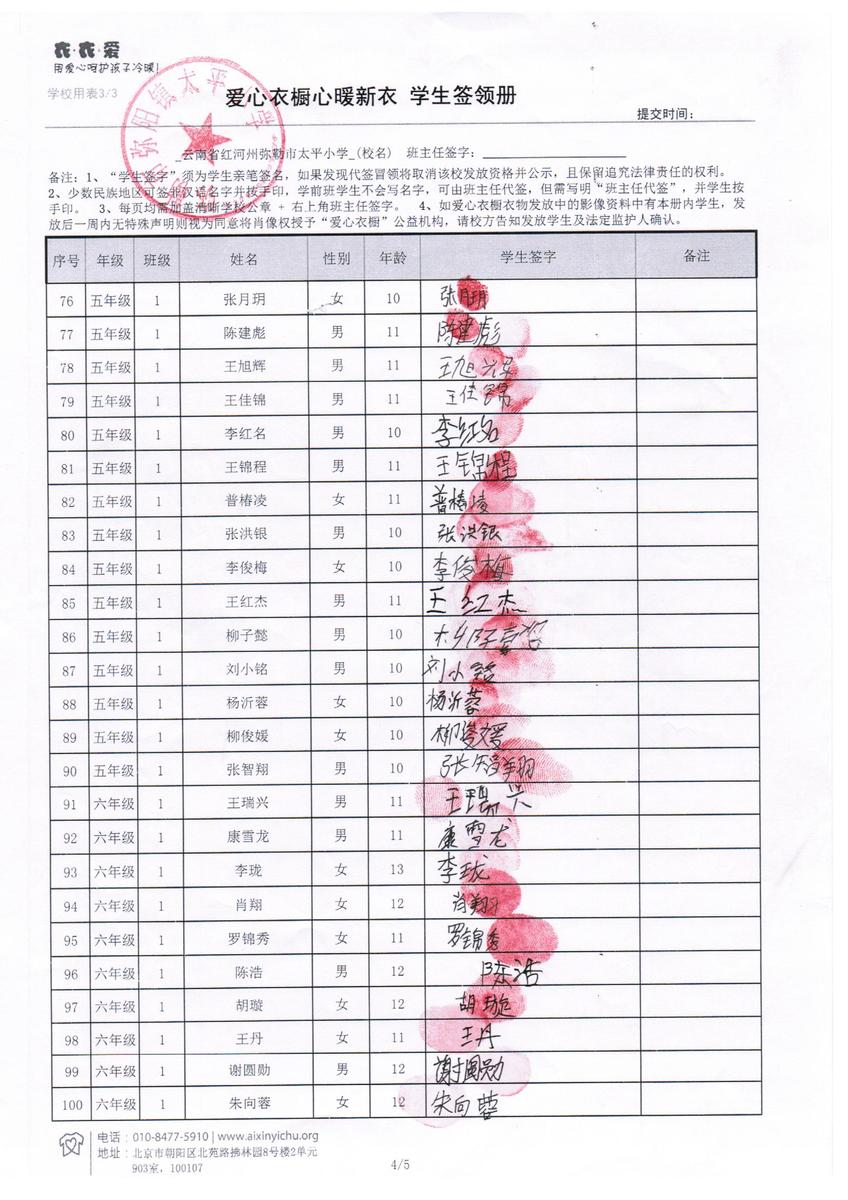 衣·衣·爱
用爱心呵护孩子冷暖!
学校用表3/3
爱心衣橱心暖新衣 学生签领册
提交时间:
弥阳镇太平小学
_云南省红河州弥勒市太平小学_(校名) 班主任签字:
备注: 1、“学生签字”须为学生亲笔签名,如果发现代签冒领将取消该校发放资格并公示,且保留追究法律责任的权利。
2、少数民族地区可签非汉语名字并按手印,学前班学生不会写名字,可由班主任代签,但需写明“班主任代签”,并学生按
手印。 3、每页均需加盖清晰学校公章 + 右上角班主任签字。 4、如爱心衣橱衣物发放中的影像资料中有本册内学生,发
放后一周内无特殊声明则视为同意将肖像权授予“爱心衣橱”公益机构,请校方告知发放学生及法定监护人确认。
序号 年级 班级 姓名 性别 年龄 学生签字 备注
76 五年级 1 张月玥 女 10 张月玥
77 五年级 1 陈建彪 男 11 陈建彪
78 五年级 1 王旭辉 男 11 王旭辉
79 五年级 1 王佳锦 男 11 王佳锦
80 五年级 1 李红名 男 10 李红名
81 五年级 1 王锦程 男 11 王锦程
82 五年级 1 普椿凌 女 11 普椿凌
83 五年级 1 张洪银 男 10 张洪银
84 五年级 1 李俊梅 女 10 李俊梅
85 五年级 1 王红杰 男 11 王红杰
86 五年级 1 柳子懿 男 10
87 五年级 1 刘小铭 男 10 刘小铭
88 五年级 1 杨沂蓉 女 10 杨沂蓉
89 五年级 1 柳俊媛 女 10 柳俊媛
90 五年级 1 张智翔 男 10 张智翔
91 六年级 1 王瑞兴 男 11 王瑞兴
92 六年级 1 康雪龙 男 11 康雪龙
93 六年级 1 李珑 女 13 李珑
94 六年级 1 肖翔 女 12 肖翔
95 六年级 1 罗锦秀 女 11 罗锦秀
96 六年级 1 陈浩 男 12 陈浩
97 六年级 1 胡璇 女 12 胡璇
98 六年级 1 王丹 女 11 王丹
99 六年级 1 谢圆勋 男 12 谢圆勋
100 六年级 1 朱向蓉 女 12 朱向蓉
电话:010-8477-5910 | www.aixinyichu.org
地址:北京市朝阳区北苑路拂林园8号楼2单元
903室,100107
4/5